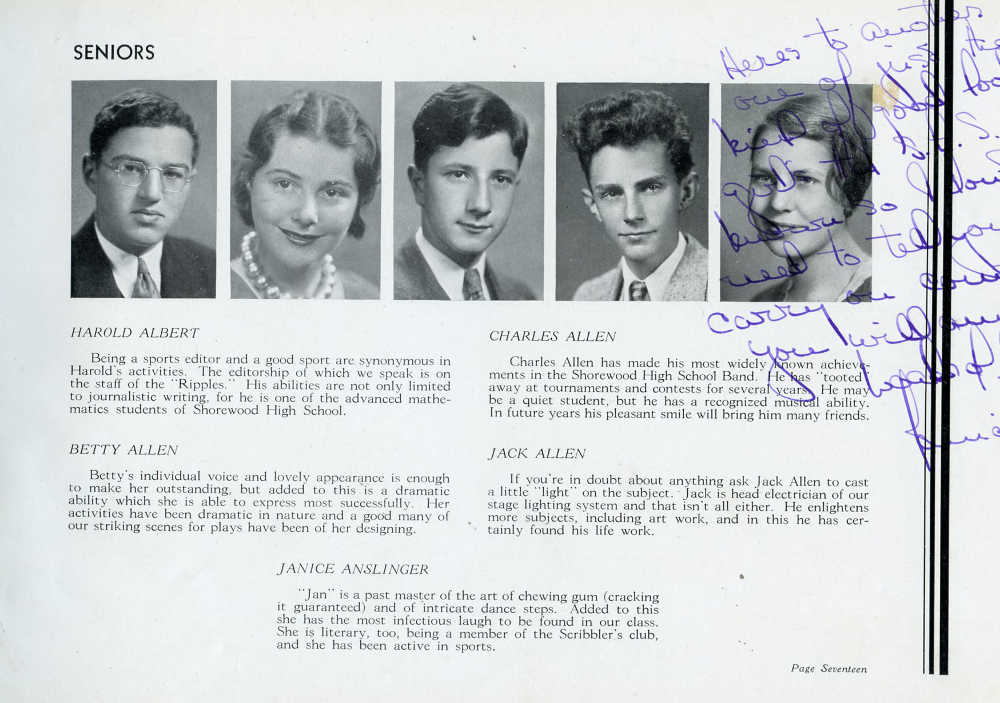 SENIORS
HAROLD ALBERT
Being a sports editor and a good sport are synonymous in
Harold's activities. The editorship of which we speak is on
the staff of the "Ripples." His abilities are not only limited
to journalistic writing, for he is one of the advanced mathe-
matics students of Shorewood High School.
BETTY ALLEN
Betty's individual voice and lovely appearance is enough
to make her outstanding, but added to this is a dramatic
ability which she is able to express most successfully. Her
activities have been dramatic in nature and a good many of
our striking scenes for plays have been of her designing.
CHARLES ALLEN
Charles Allen has made his most widely known achieve-
ments in the Shorewood High School Band. He has "tooted"
away at tournaments and contests for several years. He may
be a quiet student, but he has a recognized musical ability.
In future years his pleasant smile will bring him many friends.
JACK ALLEN
If you're in doubt about anything ask Jack Allen to cast
a little "light" on the subject. Jack is head electrician of our
stage lighting system and that isn't all either. He enlightens
more subjects, including art work, and in this he has cer-
tainly found his life work.
JANICE ANSLINGER
"Jan" is a past master of the art of chewing gum (cracking
it guaranteed) and of intricate dance steps. Added to this
she has the most infectious laugh to be found in our class.
She is literary, too, being a member of the Scribbler's club,
and she has been active in sports.
Page Seventeen
Heres to another
one of
kind of good
need to tell you
carry on
you will